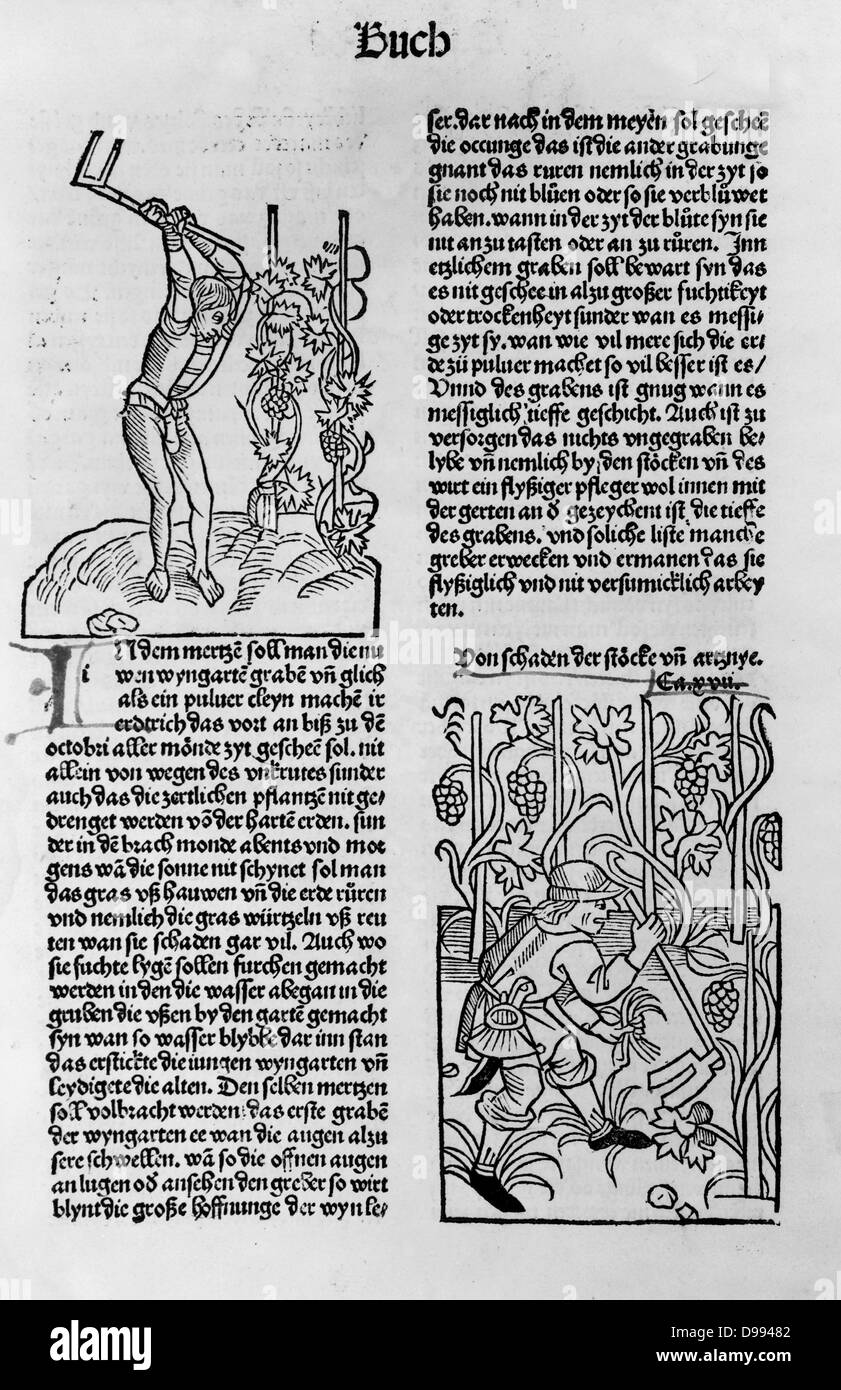 Buch
IN dem mertzē soll man die nu
wen wyngartē grabē vñ glich
als ein puluer cleyn machē ir
erdtrich das vort an biß zu dē
octobri aller mōnde zyt gescheē sol. nit
allein von wegen des vnkrutes sunder
auch das die zertlichen pflantzē nit ge⸗
drenget werden vō der hartē erden. sun
der in dē brach monde abents vnd mor
gens wā die sonne nit schynet sol man
das gras vß hauwen vñ die erde růren
vnd nemlich die gras würtzeln vß reu
ten wan sie schaden gar vil. Auch wo
sie fuchte lygē sollen furchen gemacht
werden in den die wasser abegan in die
gruben die vßen by den gartē gemacht
syn wan so wasser blybbē dar inn stan
das erstickte die iungen wyngarten vñ
leydigete die alten. Den selben mertzen
soll volbracht werden das erste grabē
der wyngarten ee wan die augen alzu
sere schwellen. wā so die offnen augen
an lugen oď ansehen den greber so wirt
blynt die große hoffnunge der wyn le⸗
ser. dar nach in dem meyēn sol gescheē
die occunge das ist die ander grabunge
gnant das ruren nemlich in der zyt so
sie noch nit blůen oder so sie verblůwet
haben. wann in der zyt der blůte syn sie
nit an zu tasten oder an zu růren. Inn
etzlichem graben soll bewart syn das
es nit geschee in alzu großer fuchtikeyt
oder trockenheyt sunder wan es messi⸗
ge zyt sy. wan wie vil mere sich die er⸗
de zü puluer machet so vil besser ist es/
Vnnd des grabens ist gnug wann es
messiglich tieffe geschicht. Auch ist zu
versorgen das nichts vngegraben be⸗
lybe vñ nemlich by den stöcken vñ des
wirt ein flyßiger pfleger wol innen mit
der gerten an ď gezeychent ist die tieffe
des grabens. vnd soliche liste manche
greber erwecken vnd ermanen das sie
flyßiglich vnd nit versumicklich arbey
ten.
Von schaden der stöcke vñ artznye.
Ca. xvii.
alamy
Image ID: D99482
www.alamy.com